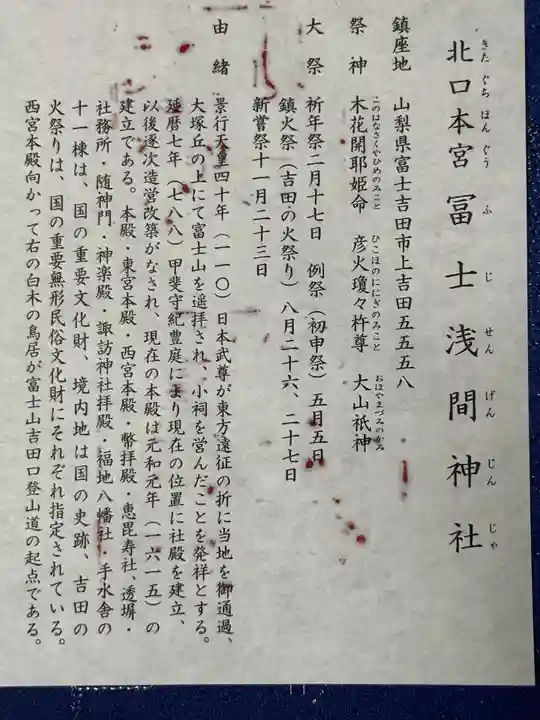 北口本宮冨士浅間神社
きたぐちほんぐうふじせんげんじんじゃ
鎮座地　山梨県富士吉田市上吉田五五五八
祭神　木花開耶姫命　彦火瓊々杵尊　大山祇神
このはなさくやひめのみこと　ひこほのににぎのみこと　おほやまづみのかみ
大祭　祈年祭二月十七日　例祭（初申祭）五月五日
鎮火祭（吉田の火祭り）八月二十六、二十七日
新嘗祭十一月二十三日
由緒　景行天皇四十年（一一〇）日本武尊が東方遠征の折に当地を御通過、
大塚丘の上にて富士山を遥拝され、小祠を営んだことを発祥とする。
延暦七年（七八八）甲斐守紀豊庭により現在の位置に社殿を建立、
以後逐次造営改築がなされ、現在の本殿は元和元年（一六一五）の
建立である。本殿・東宮本殿・西宮本殿・幣拝殿・恵毘寿社、透塀・
社務所・随神門・神楽殿・諏訪神社拝殿・福地八幡社・手水舎の
十一棟は、国の重要文化財、境内地は国の史跡、吉田の
火祭りは、国の重要無形民俗文化財にそれぞれ指定されている。
西宮本殿向かって右の白木の鳥居が富士山吉田口登山道の起点である。